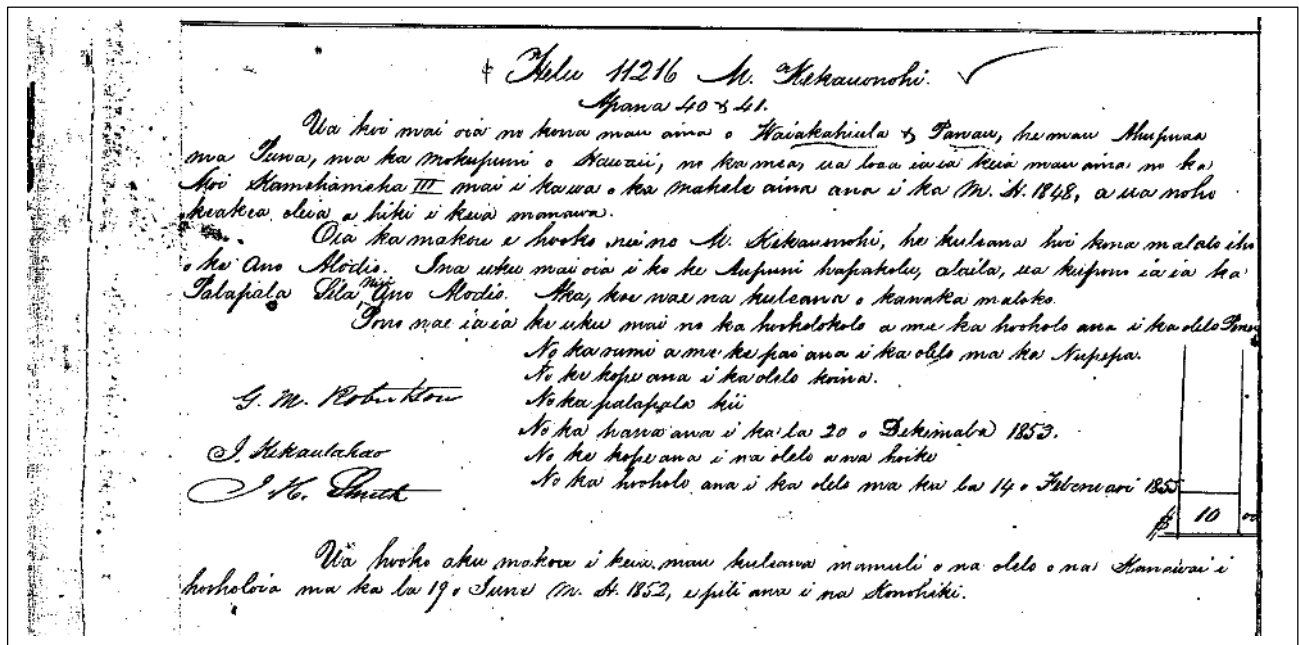 Helu 11216 M. Kekauonohi.
Apana 40 & 41.
Ua koi mai oia no kona mau aina o Waiakahiula & Panau, he mau Ahupuaa
ma Puna, ma ka mokupuni o Hawaii, no ka mea, ua loaa iaia keia mau aina no ka
Moi Kamehameha III mai i ka wa o ka mahele aina ana i ka M. H. 1848, a ua noho
keakea oleia a hiki i keia manawa.
Oia ka makou e hooko nei no M. Kekauonohi, he kuleana hoi kona malalo iho
o ke Ano Alodio. Ina uku mai oia i ko ke Aupuni hapakolu, alaila, ua kupono iaia ka
Palapala Sila Nui Ano Alodio. Aka, koe nae na kuleana o kanaka maloko.
Pono nae iaia ke uku mai no ka hookolokolo a me ka hooholo ana i ka olelo
No ka rumi a me ke pai ana i ka olelo ma ka Nupepa.
No ke kope ana i ka olelo koina.
G. M. Robertson No ka palapala kii
No ka hana ana i ka la 20 o Dekemaba 1853.
J. Kekaulahao No ke kope ana i na olelo a na hoike
J. H. Smith No ka hooholo ana i ka olelo ma ka la 14 o Feberuari 1855
$ 10 00
Ua hooko aku makou i keia mau kuleana mamuli o na olelo o na Kanawai i
hooholoia ma ka la 19 o June M. H. 1852, e pili ana i na Konohiki.